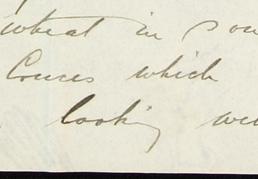 wheat in sou
Cruces which
looking we